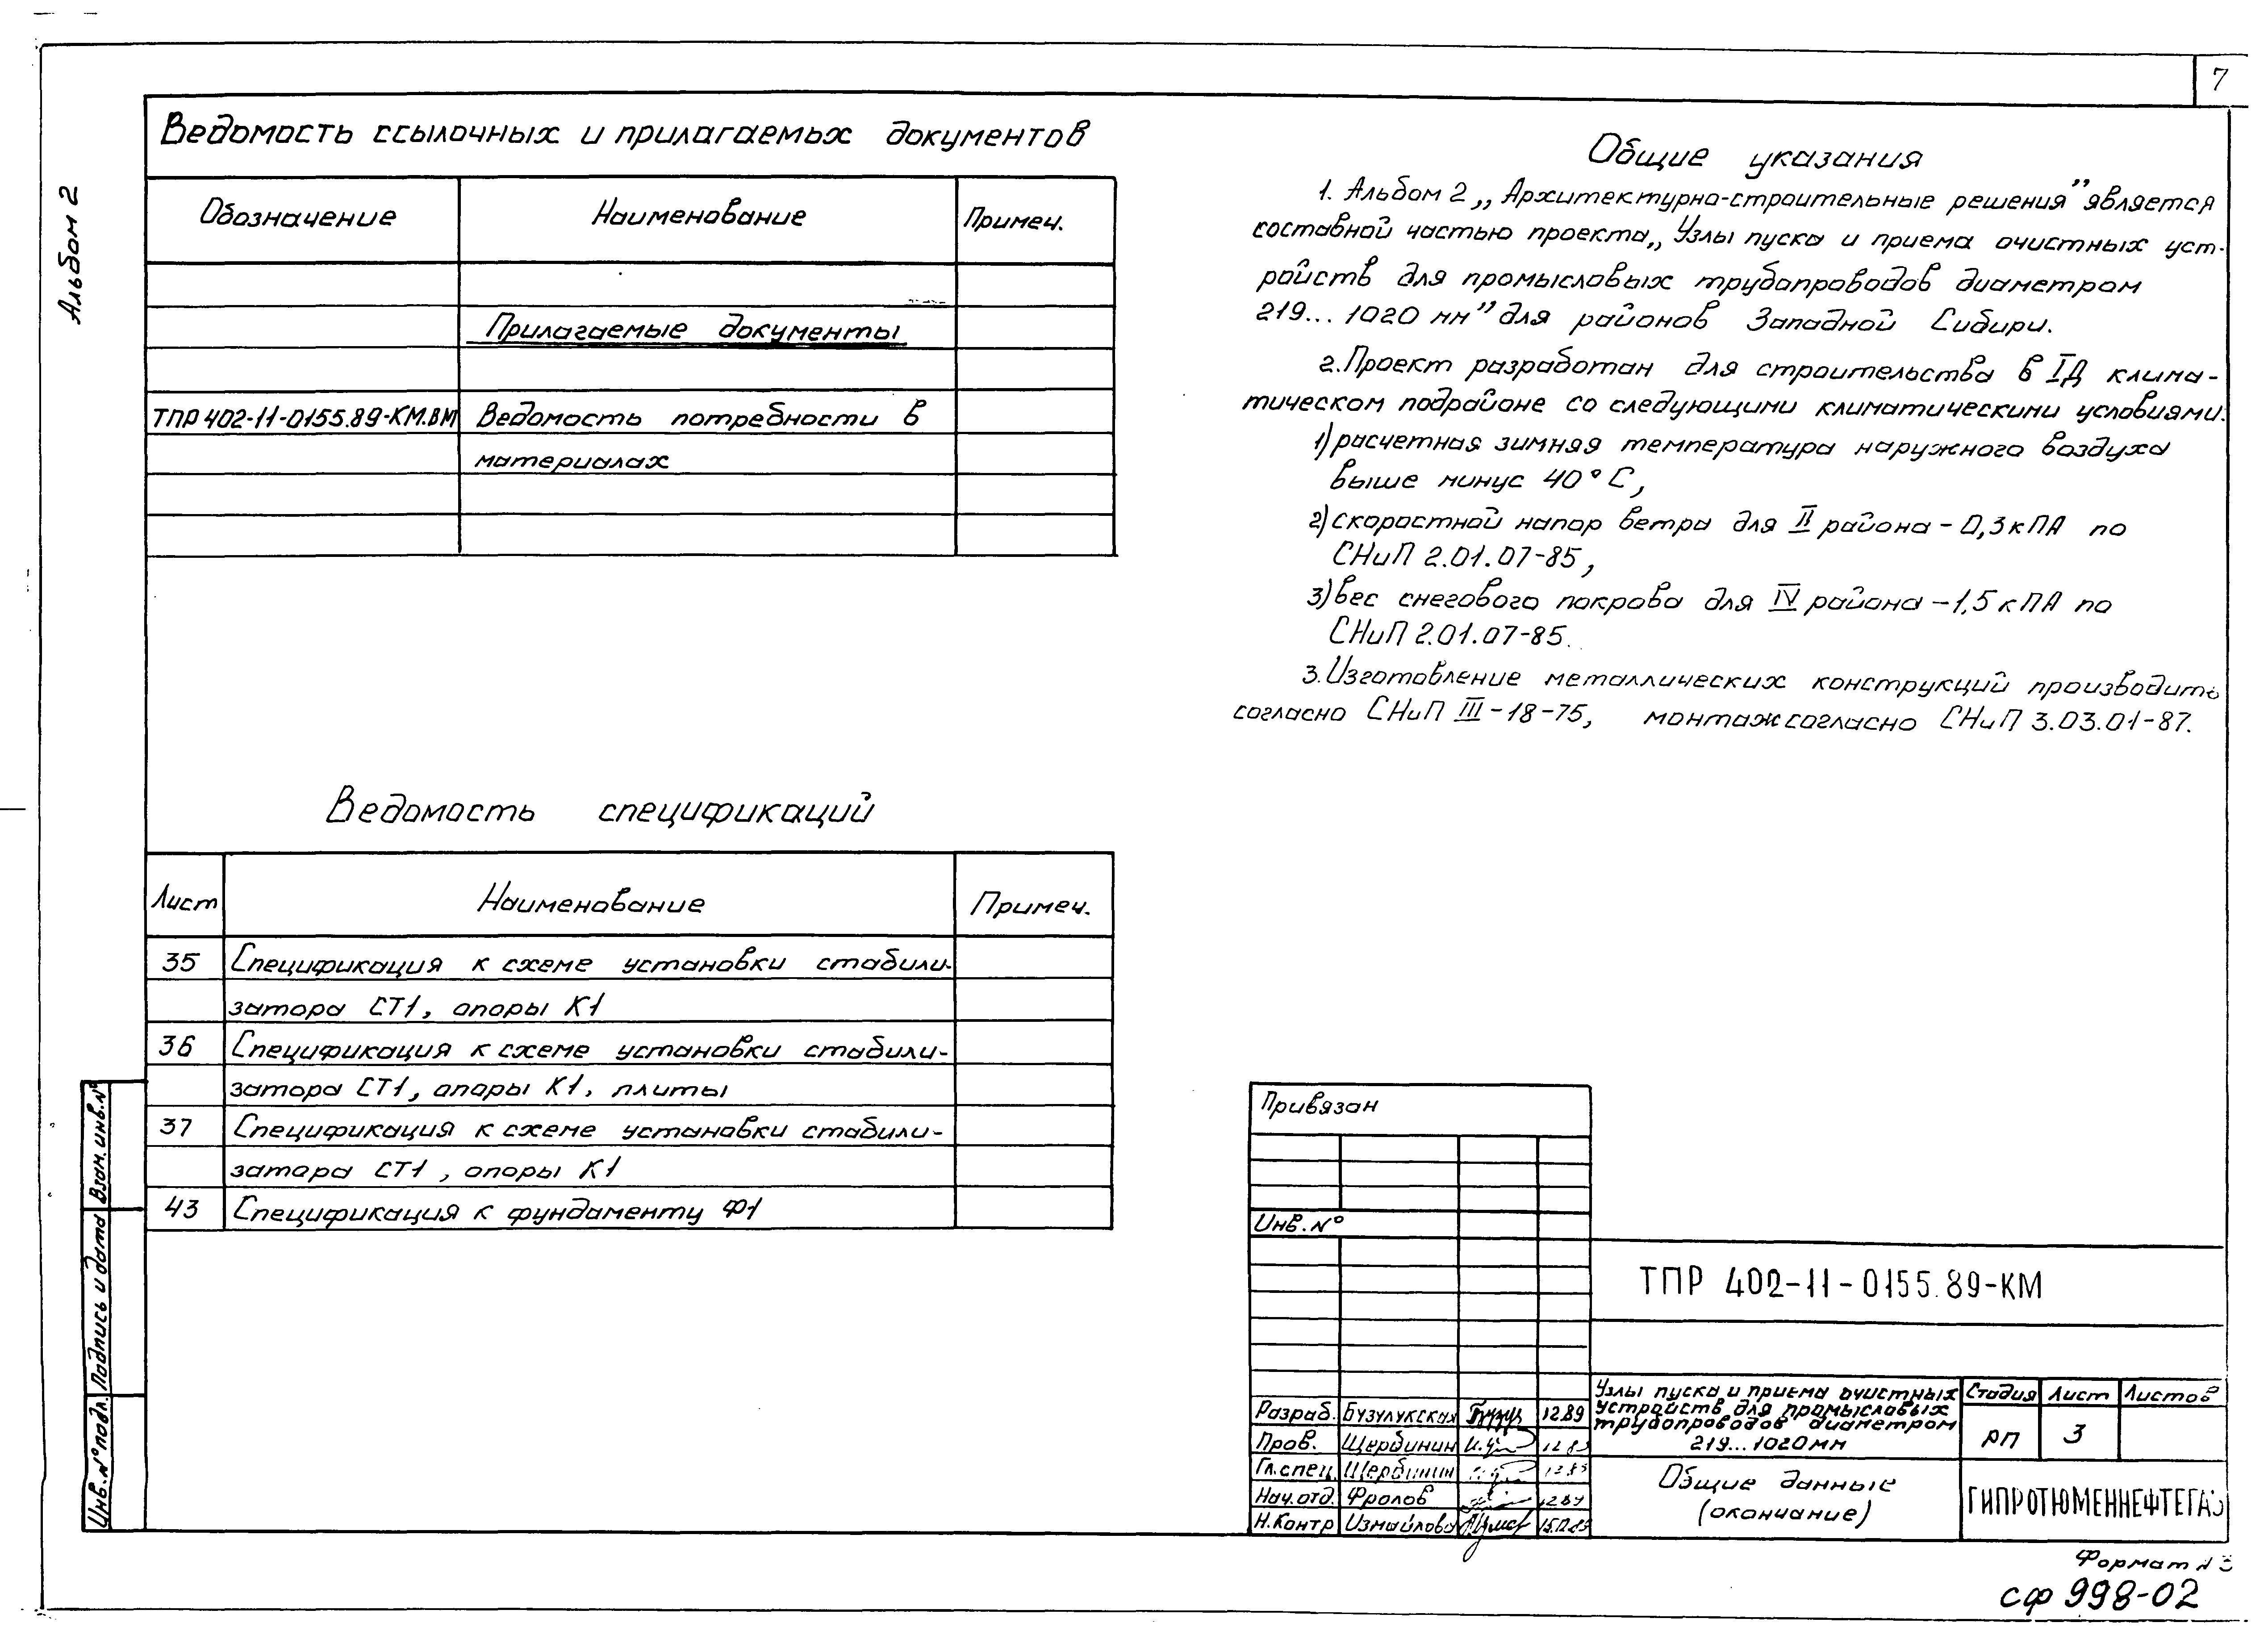 7
Альбом 2
Ведомость ссылочных и прилагаемых документов
Обозначение Наименование Примеч.
Прилагаемые документы
ТПР 402-11-0155.89-КМ.ВМ Ведомость потребности в
материалах
Общие указания
1. Альбом 2 „Архитектурно-строительные решения” является
составной частью проекта „Узлы пуска и приема очистных уст-
ройств для промысловых трубопроводов диаметром
219...1020 мм” для районов Западной Сибири.
2. Проект разработан для строительства в IД клима-
тическом подрайоне со следующими климатическими условиями:
1) расчетная зимняя температура наружного воздуха
выше минус 40°С,
2) скоростной напор ветра для II района - 0,3 кПА по
СНиП 2.01.07-85,
3) вес снегового покрова для IV района - 1,5 кПА по
СНиП 2.01.07-85.
3. Изготовление металлических конструкций производить
согласно СНиП III-18-75, монтаж согласно СНиП 3.03.01-87.
Ведомость спецификаций
Лист Наименование Примеч.
35 Спецификация к схеме установки стабили-
затора СТ1, опоры К1
36 Спецификация к схеме установки стабили-
затора СТ1, опоры К1, плиты
37 Спецификация к схеме установки стабили-
затора СТ1, опоры К1
43 Спецификация к фундаменту Ф1
Взам. инв. №
Подпись и дата
Инв. № подл.
Привязан
Инв. №
ТПР 402-11-0155.89-КМ
Разраб. Бузулукская 12.89
Пров. Щербинин
Гл. спец. Щербинин 12.89
Нач. отд. Фролов 12.89
Н. Контр Измайлова 15.12.89
Узлы пуска и приема очистных
устройств для промысловых
трубопроводов диаметром
219...1020 мм
Стадия Лист Листов
РП 3
Общие данные
(окончание)
ГИПРОТЮМЕННЕФТЕГАЗ
Формат А3
сф 998-02